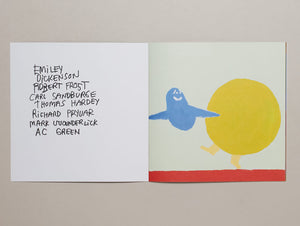 EMILEY
DICKENSON
ROBERT FROST
CARL SANDBURGE
THOMAS HARDEY
RICHARD PRYUAR
MARK WOUNDERLICK
AC GREEN